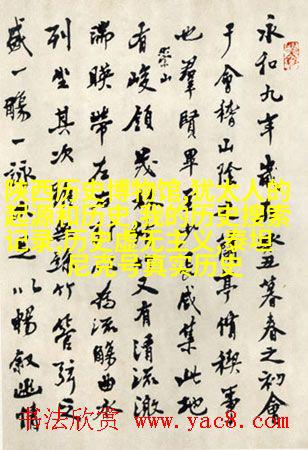 永和九年歲丑暮春之初會
于會稽山陰蘭亭脩稧事
也羣賢畢咸集此地
有崇山峻領茂林又有清流激
湍暎帶左右為流觴曲水
列坐其次竹管弦之
盛一觴一詠以暢敘幽情
陕西历史博物馆,犹太人的
起源和历史,我的历史搜索
记录,历史虚无主义,泰坦
尼克号真实历史
书法欣赏 www.yac8.com